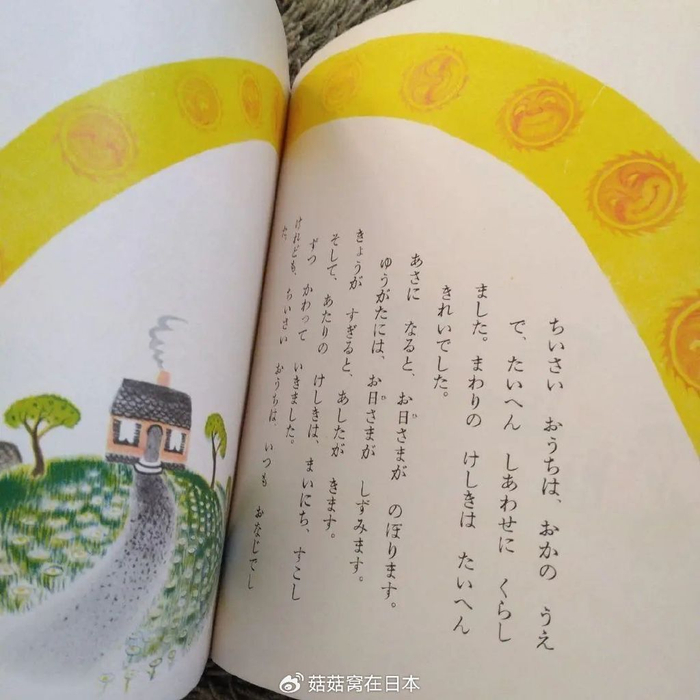 ちいさい おうちは、おかの うえ
で、たいへん しあわせに くらし
ました。まわりの けしきは たいへん
きれいでした。
あさに なると、お日さまが のぼります。
ゆうがたには、お日さまが しずみます。
きょうが すぎると、あしたが きます。
そして、あたりの けしきは、まいにち、すこし
ずつ かわって いきました。
けれども、ちいさい おうちは、いつも おなじでし
た。
菇菇窝在日本